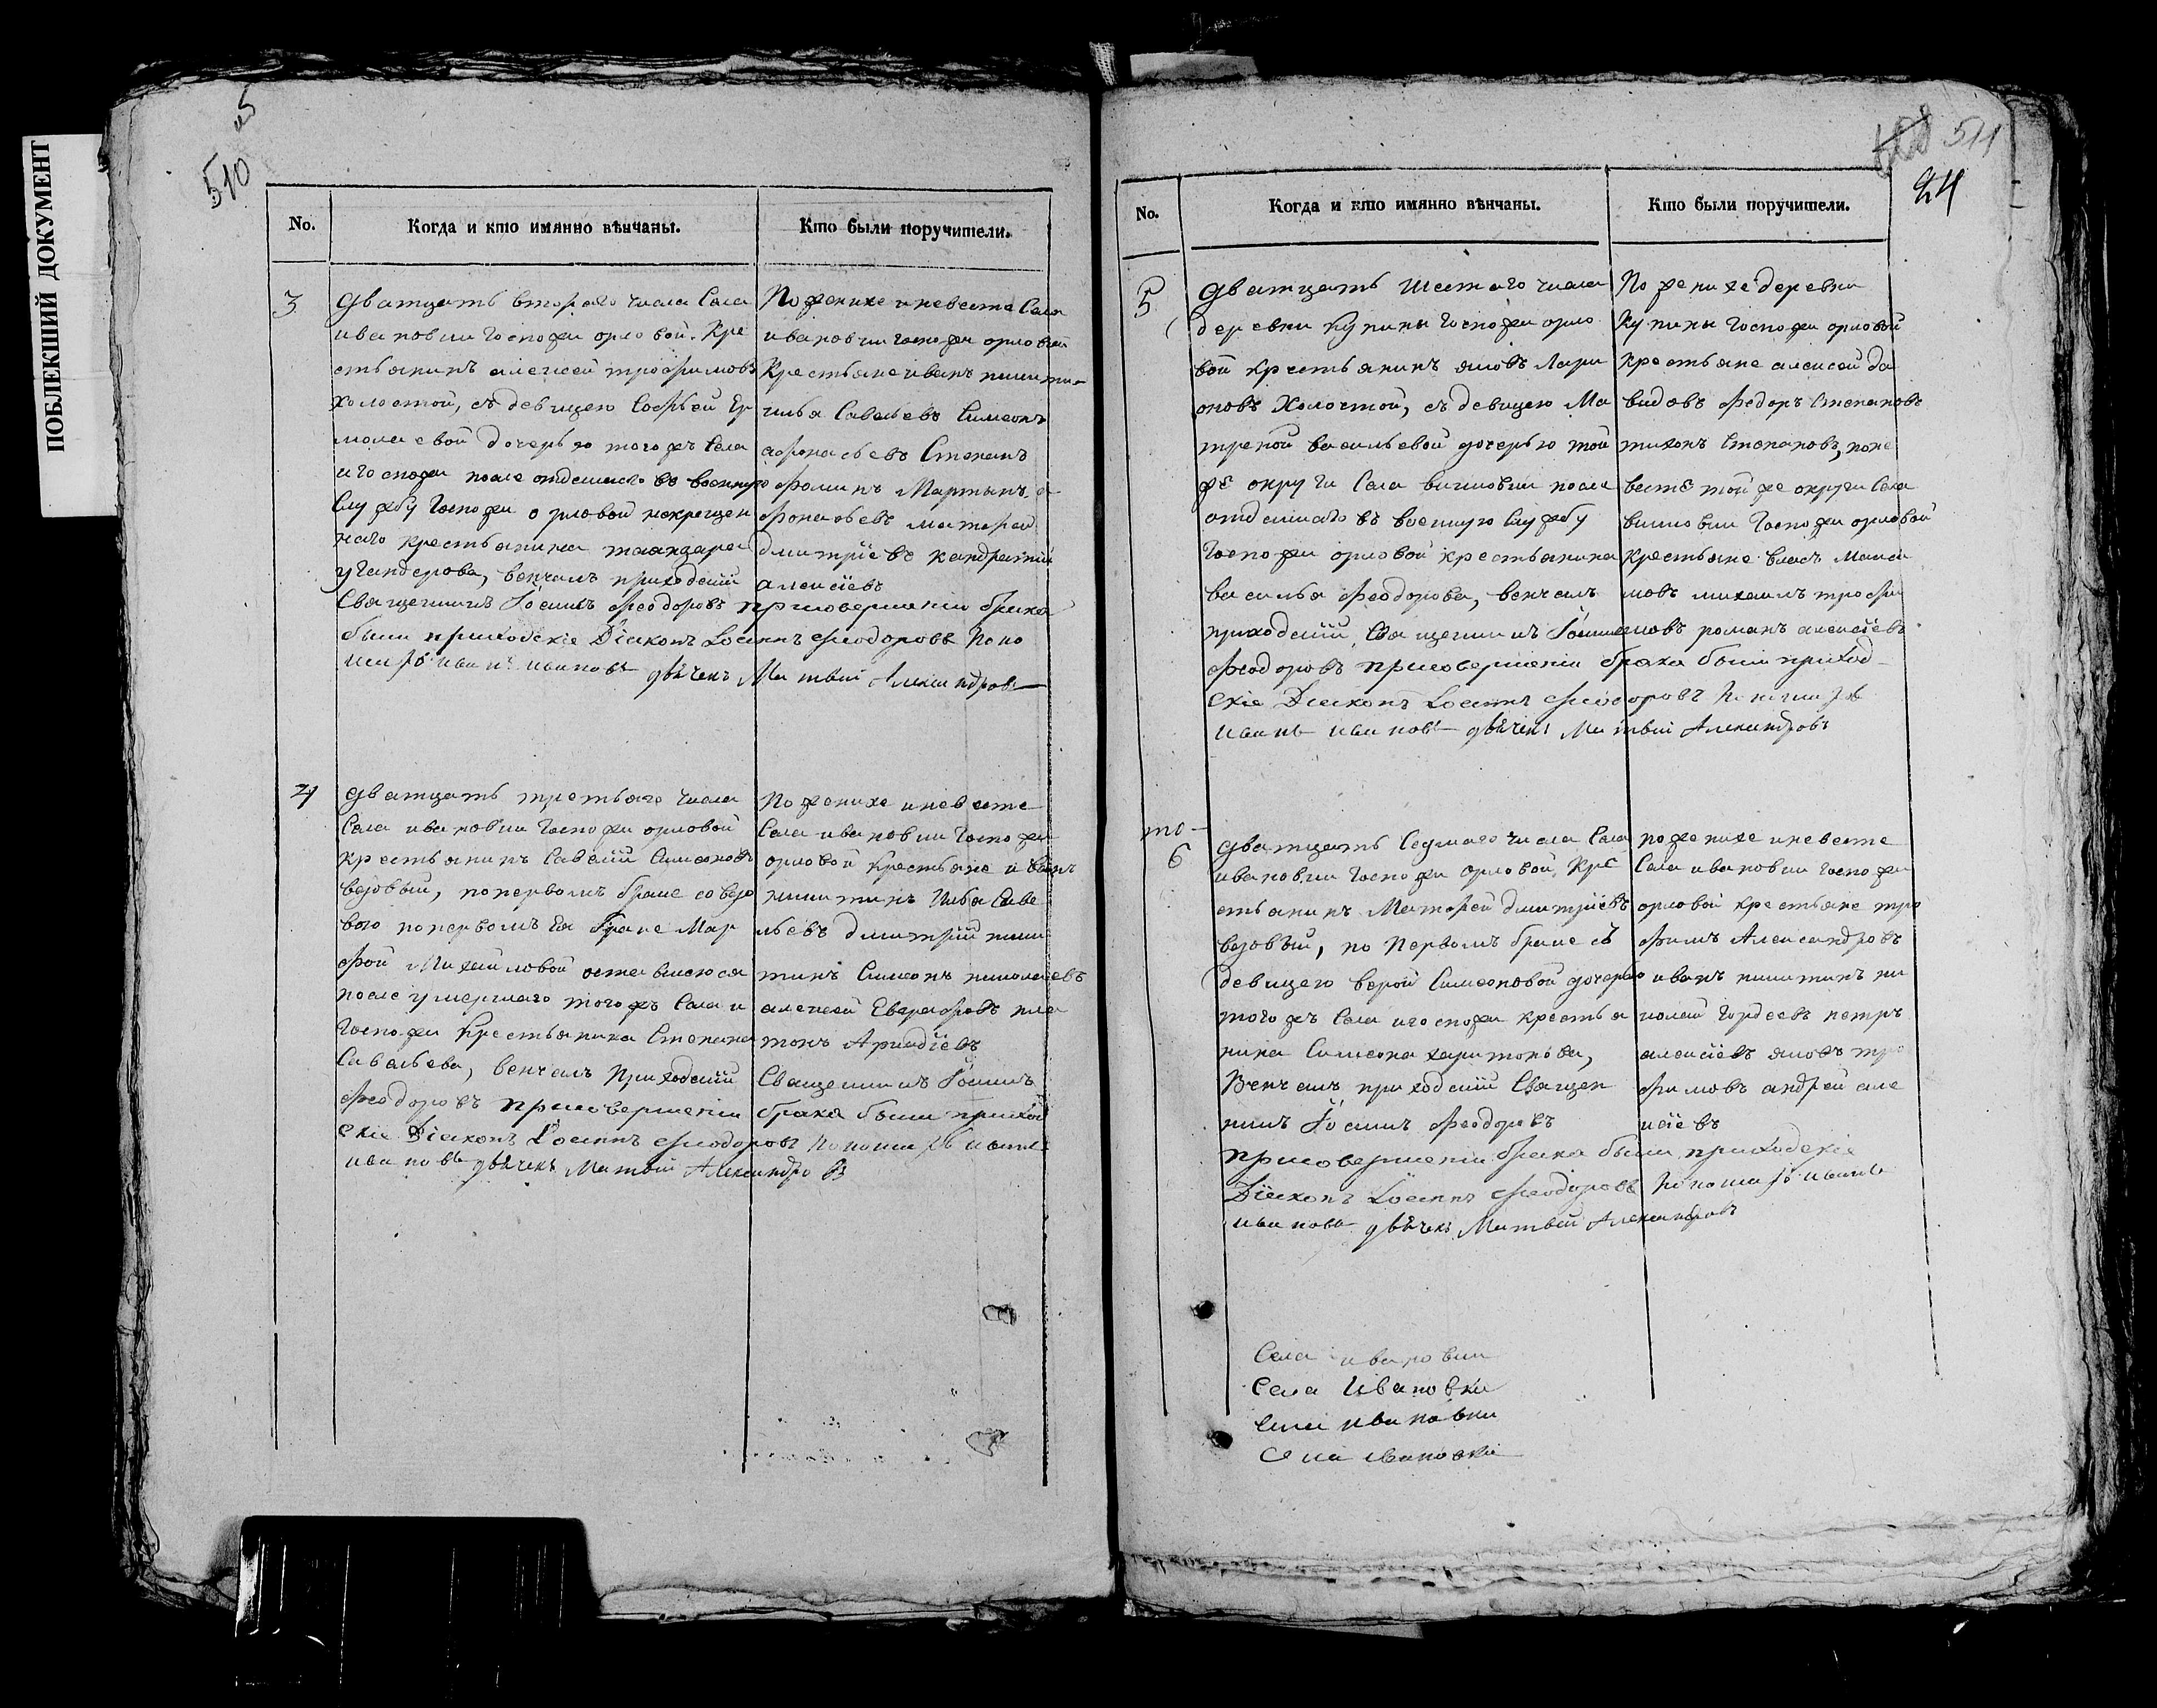 ПОБЛЕКШИЙ ДОКУМЕНТ
510
No.
Когда и кто имянно вѣнчаны.
Кто были поручители.
3
дватцать втораго числа Села
ивановки Госпожи орловой Кре
стьянинъ алексей трофимовъ
холостой, съ девицею Софьей Ер
молаевой дочерью тогожъ Села
игоспожи после отданнаго въ военную
Службу Госпожи орловой
наго крестьянина
венчалъ приходский
Священникъ Iоаннъ Феодоровъ присовершении брака
были приходские Дiаконъ Iоаннъ Феодоровъ Поно
марь иванъ ивановъ дьячекъ Матвей Александровъ
Пожениxе иневесте Села
ивановки госпожи орловой
Крестьяне иванъ никити
илья Савельевъ Симеонъ
афонасьевъ Степанъ
Фоминъ Мартынъ а
фонасьевъ матфей
дмитрiевъ кандратий
алексiевъ
4
дватцать третьяго числа
Села ивановки Госпожи орловой
крестьянинъ Савелий Симеоновъ
вдовый, попервомъ браке совдо
вою попервомъ Ея браке Мар
фой Михайловой оставшеюся
после умершаго тогожъ Села и
Госпожи Крестьянина Степана
Савельева, венчалъ Приходский Священникъ Iоаннъ
Феодоровъ присовершении брака были приход
ские Дiаконъ Iоаннъ Феодоровъ Пономарь иванъ
ивановъ дьячекъ Матвей Александровъ
Пожениxе иневесте
Села ивановки Госпожи
орловой Крестьяне иванъ
никитинъ Илья Саве
льевъ дмитрий ники
тинъ Симеонъ николаевъ
алексей Евграфовъ пла
тонъ Аркадiевъ
511
24
No.
Когда и кто имянно вѣнчаны.
Кто были поручители.
5
дватцать шестаго числа
деревни Купины Госпожи орло
вой крестьянинъ яковъ Лари
оновъ Холостой, съ девицею Ма
треной васильевой дочерью той
же округи Села висловки после
отданнаго въ военную Службу
Госпожи орловой крестьянина
василья Феодорова, венчалъ
приходский Священникъ Iоаннъ
Феодоровъ присовершении брака были приход
ские Дiаконъ Iоаннъ Феодоровъ Пономарь
иванъ ивановъ дьячекъ Матвей Александровъ
По женихе деревни
Купины Госпожи орловой
крестьяне алексей да
видовъ Федоръ Степановъ
тихонъ Степановъ, поне
весте той же округи Села
висловки Госпожи орловой
крестьяне власъ Макси
мовъ михаилъ трофи
мовъ романъ алексiевъ
6
дватцать Седмаго числа Села
ивановки Госпожи Орловой, Кре
стьянинъ Матфей дмитрiевъ
вдовый, по Первомъ браке съ
девицею верой Симеоновой дочерью
тогожъ Села игоспожи крестья
нина Симеона харитонова,
Венчалъ приходский Священ
никъ Iоаннъ Феодоровъ
присовершении брака были приходские
Дiаконъ Iоаннъ Феодоровъ Пономарь иванъ
ивановъ дьячекъ Матвей Александровъ
пожениxе иневесте
Села ивановки госпожи
орловой крестьяне тро
фимъ Александровъ
иванъ никитинъ ни
колай Гордеевъ петръ
алексiевъ яковъ тро
фимовъ андрей але
ксiевъ
Села ивановки
Села Ивановки
Села Ивановки
Села Ивановки